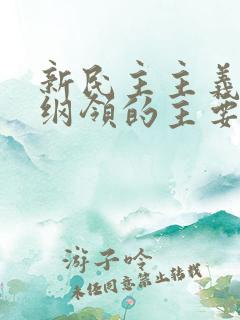 新民主主義
纲領的主要
游子吟
未经同意禁止转载